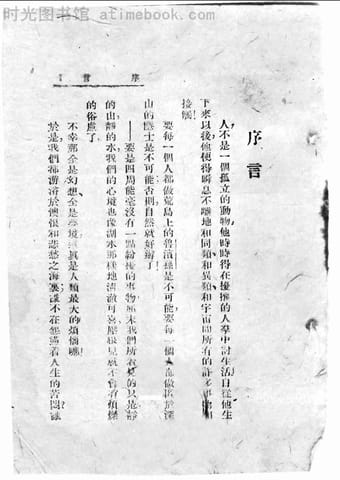 时光图书馆 - atimebook.com
序言
序言
人不是一個孤立的動物他時時得在擾攘的人羣中討生活自從他生
下來以後他便得瞬息不離地和同類和異類和宇宙間所有的許多
接觸！
要每一個人都做荒島上的魯濱孫是不可能要每一個人都做於深
山的隱士是不可能否則自然就好辦了！
——要是四周能毫沒有一點紛擾的事物那末我們所看見的只是靜
的山靜的水我們的心境也像湖水那樣地清澈可喜壓根兒就不會有煩惱
的俗慮了。
不幸那全是幻想全是夢境這真是人類最大的煩惱喲！
於是我們都游泳於懊恨和悲愁之海裏誰不在怨着人生的苦悶誰